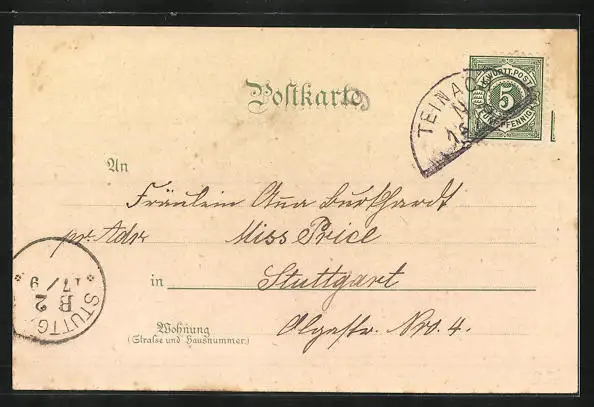 Postkarte
K. WÜRTT. POST
5
FÜNF PFENNIG
TEINACH
An
Fräulein Anna Burkhardt
pr. Adr. Miss Price
in Stuttgart
Wohnung
(Straße und Hausnummer)
Olgastr. Nro. 4.
STUTTG
B 2
17/9